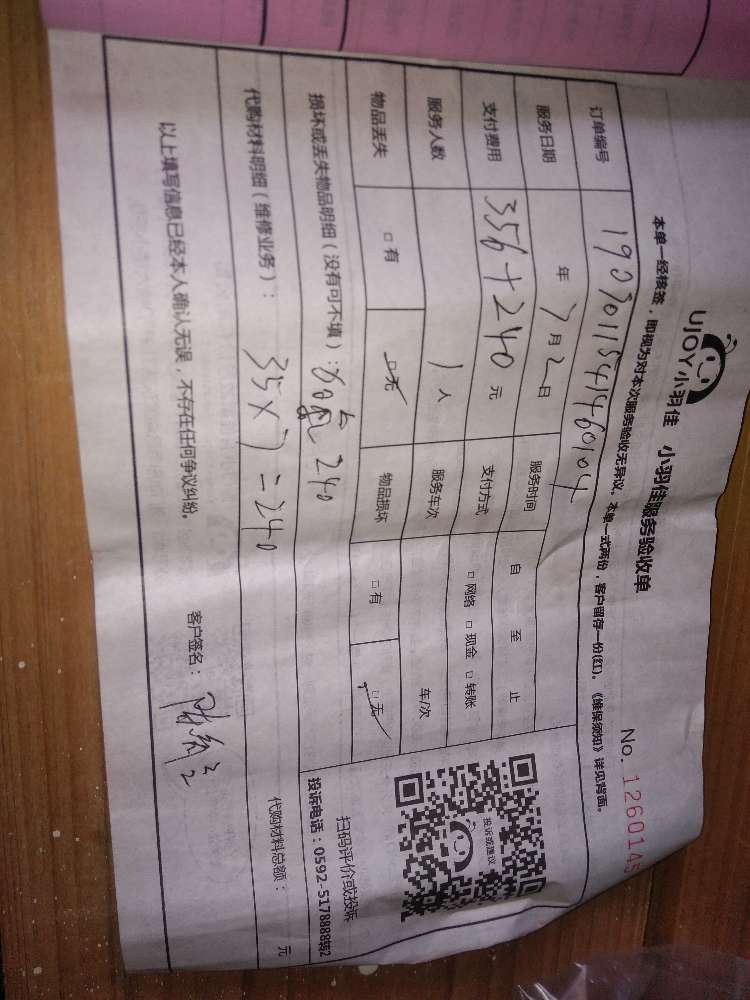 UJOY小羽佳 小羽佳服务验收单 No. 1260145
本单一经核签，即视为对本次服务验收无异议。本单一式两份，客户留存一份(红)。《维保须知》详见背面。
订单编号 1907011541460104
服务日期 年 7月2日 服务时间 自 至 止
支付费用 356+240 元 支付方式 □网络 □现金 □转账
服务人数 1 人 服务车次 车/次
物品丢失 □有 □无 物品损坏 □有 □无
损坏或丢失物品明细（没有可不填）： 240
扫码评价或投诉
投诉电话：0592-5178888转2
投诉或建议
代购材料明细（维修业务）： 35×7=240
代购材料总额： 元
以上填写信息已经本人确认无误，不存在任何争议纠纷。 客户签名：